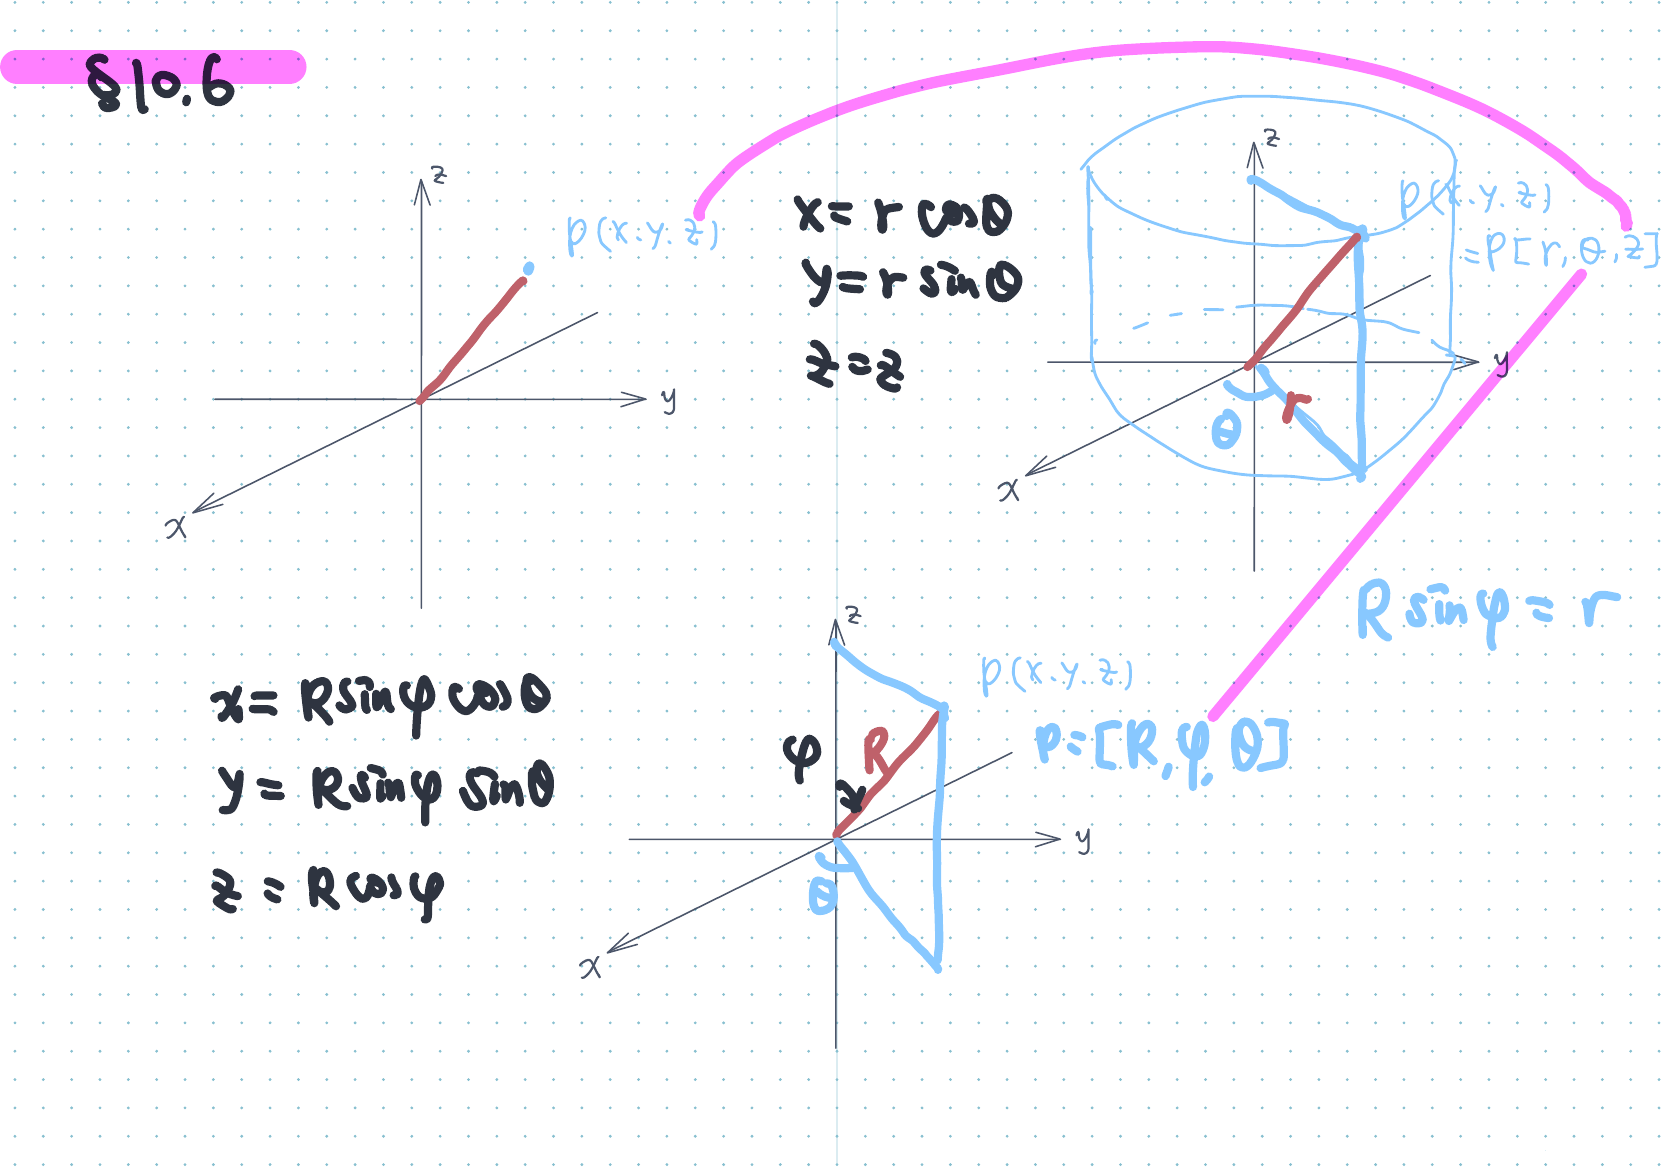 §10.6
z
P(x.y.z)
y
x
x = r cosθ
y = r sinθ
z = z
z
P(x.y.z)
= P[r, θ, z]
y
r
θ
x
R sinφ = r
x = R sinφ cosθ
y = R sinφ sinθ
z = R cosφ
z
P(x.y.z)
P = [R, φ, θ]
φ
R
y
θ
x